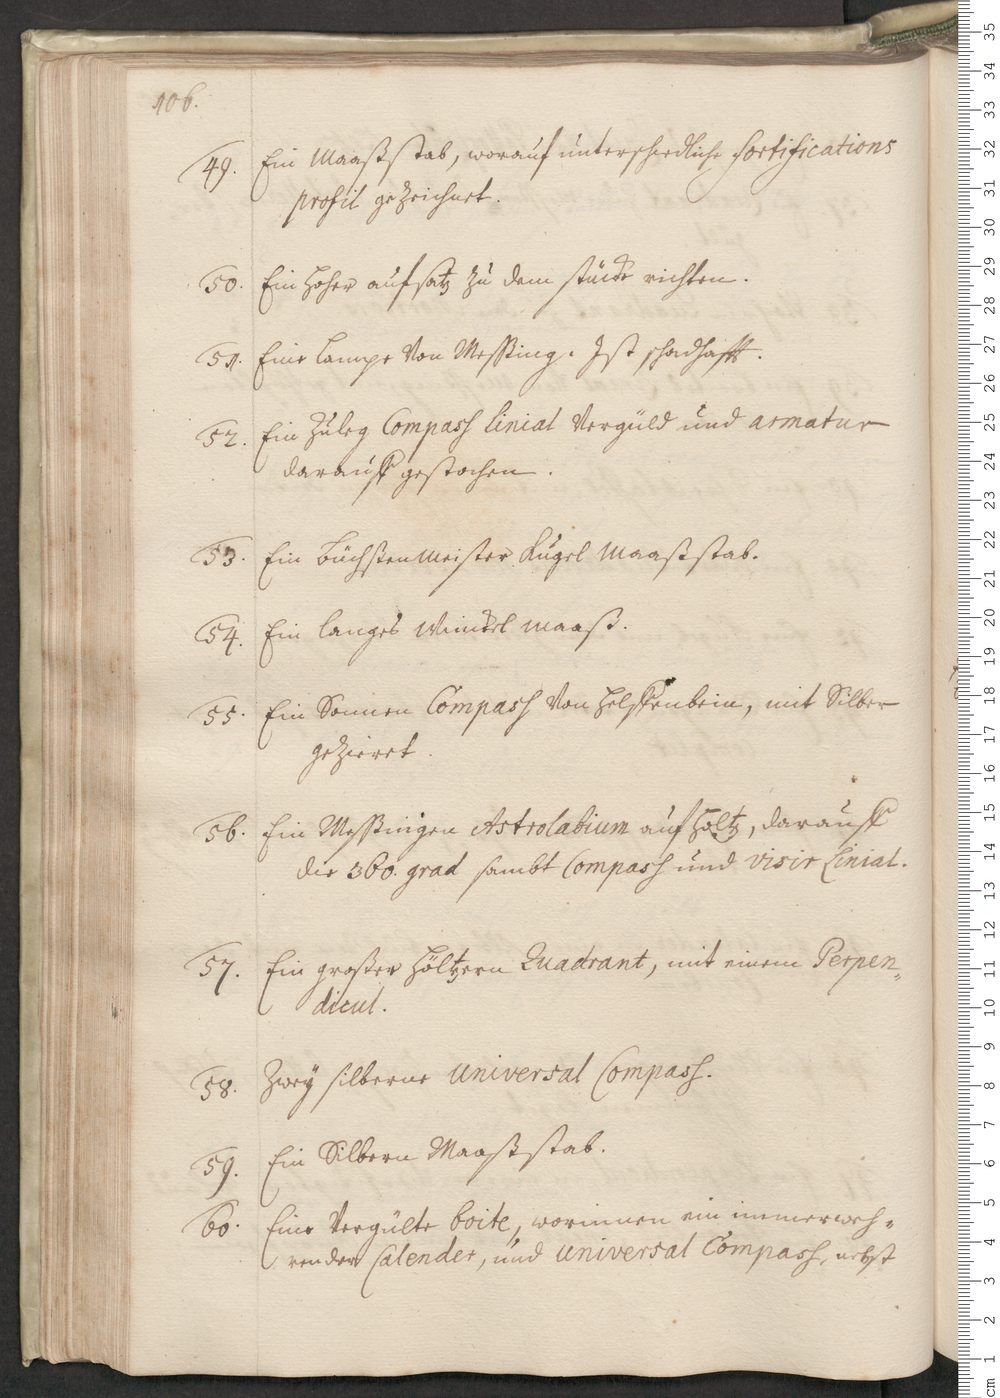 106.
49. Ein Maaßstab, worauf unterschiedliche fortifications
profil gezeichnet.
50. Ein hoher aufsatz zu dem stück richten.
51. Eine Lampe Von Messing. Ist schadhafft.
52. Ein Zuleg Compass linial Vergüld und armatur
darauff gestochen.
53. Ein Büchssenmeister Kugel Maaßstab.
54. Ein langes Winckel maaß.
55. Ein Sonnen Compass Von helffenbein, mit Silber
gezieret.
56. Ein Messingen Astrolabium auf holtz, darauff
die 360. grad sambt Compass und visir Linial.
57. Ein großer höltzern Quadrant, mit einem Perpen„
dicul.
58. Zwey silberne universal Compass.
59. Ein Silbern Maaßstab.
60. Eine Vergülte boite, worinnen ein immerweh„
render Calender, und universal Compass, nebst
35
34
33
32
31
30
29
28
27
26
25
24
23
22
21
20
19
18
17
16
15
14
13
12
11
10
9
8
7
6
5
4
3
2
1
cm